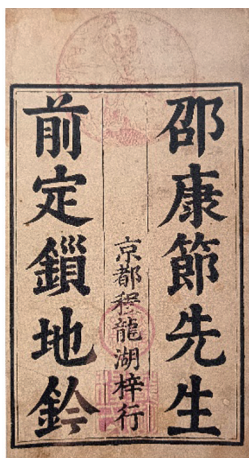 邵康節先生
京都程龍湖梓行
前定鎖地鈐